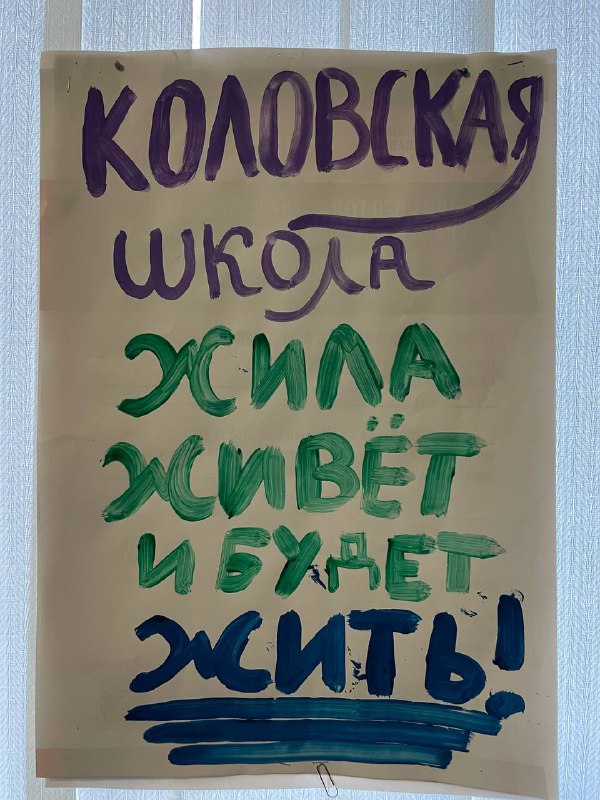 КОЛОВСКАЯ
ШКОЛА
ЖИЛА
ЖИВЁТ
И БУДЕТ
ЖИТЬ!